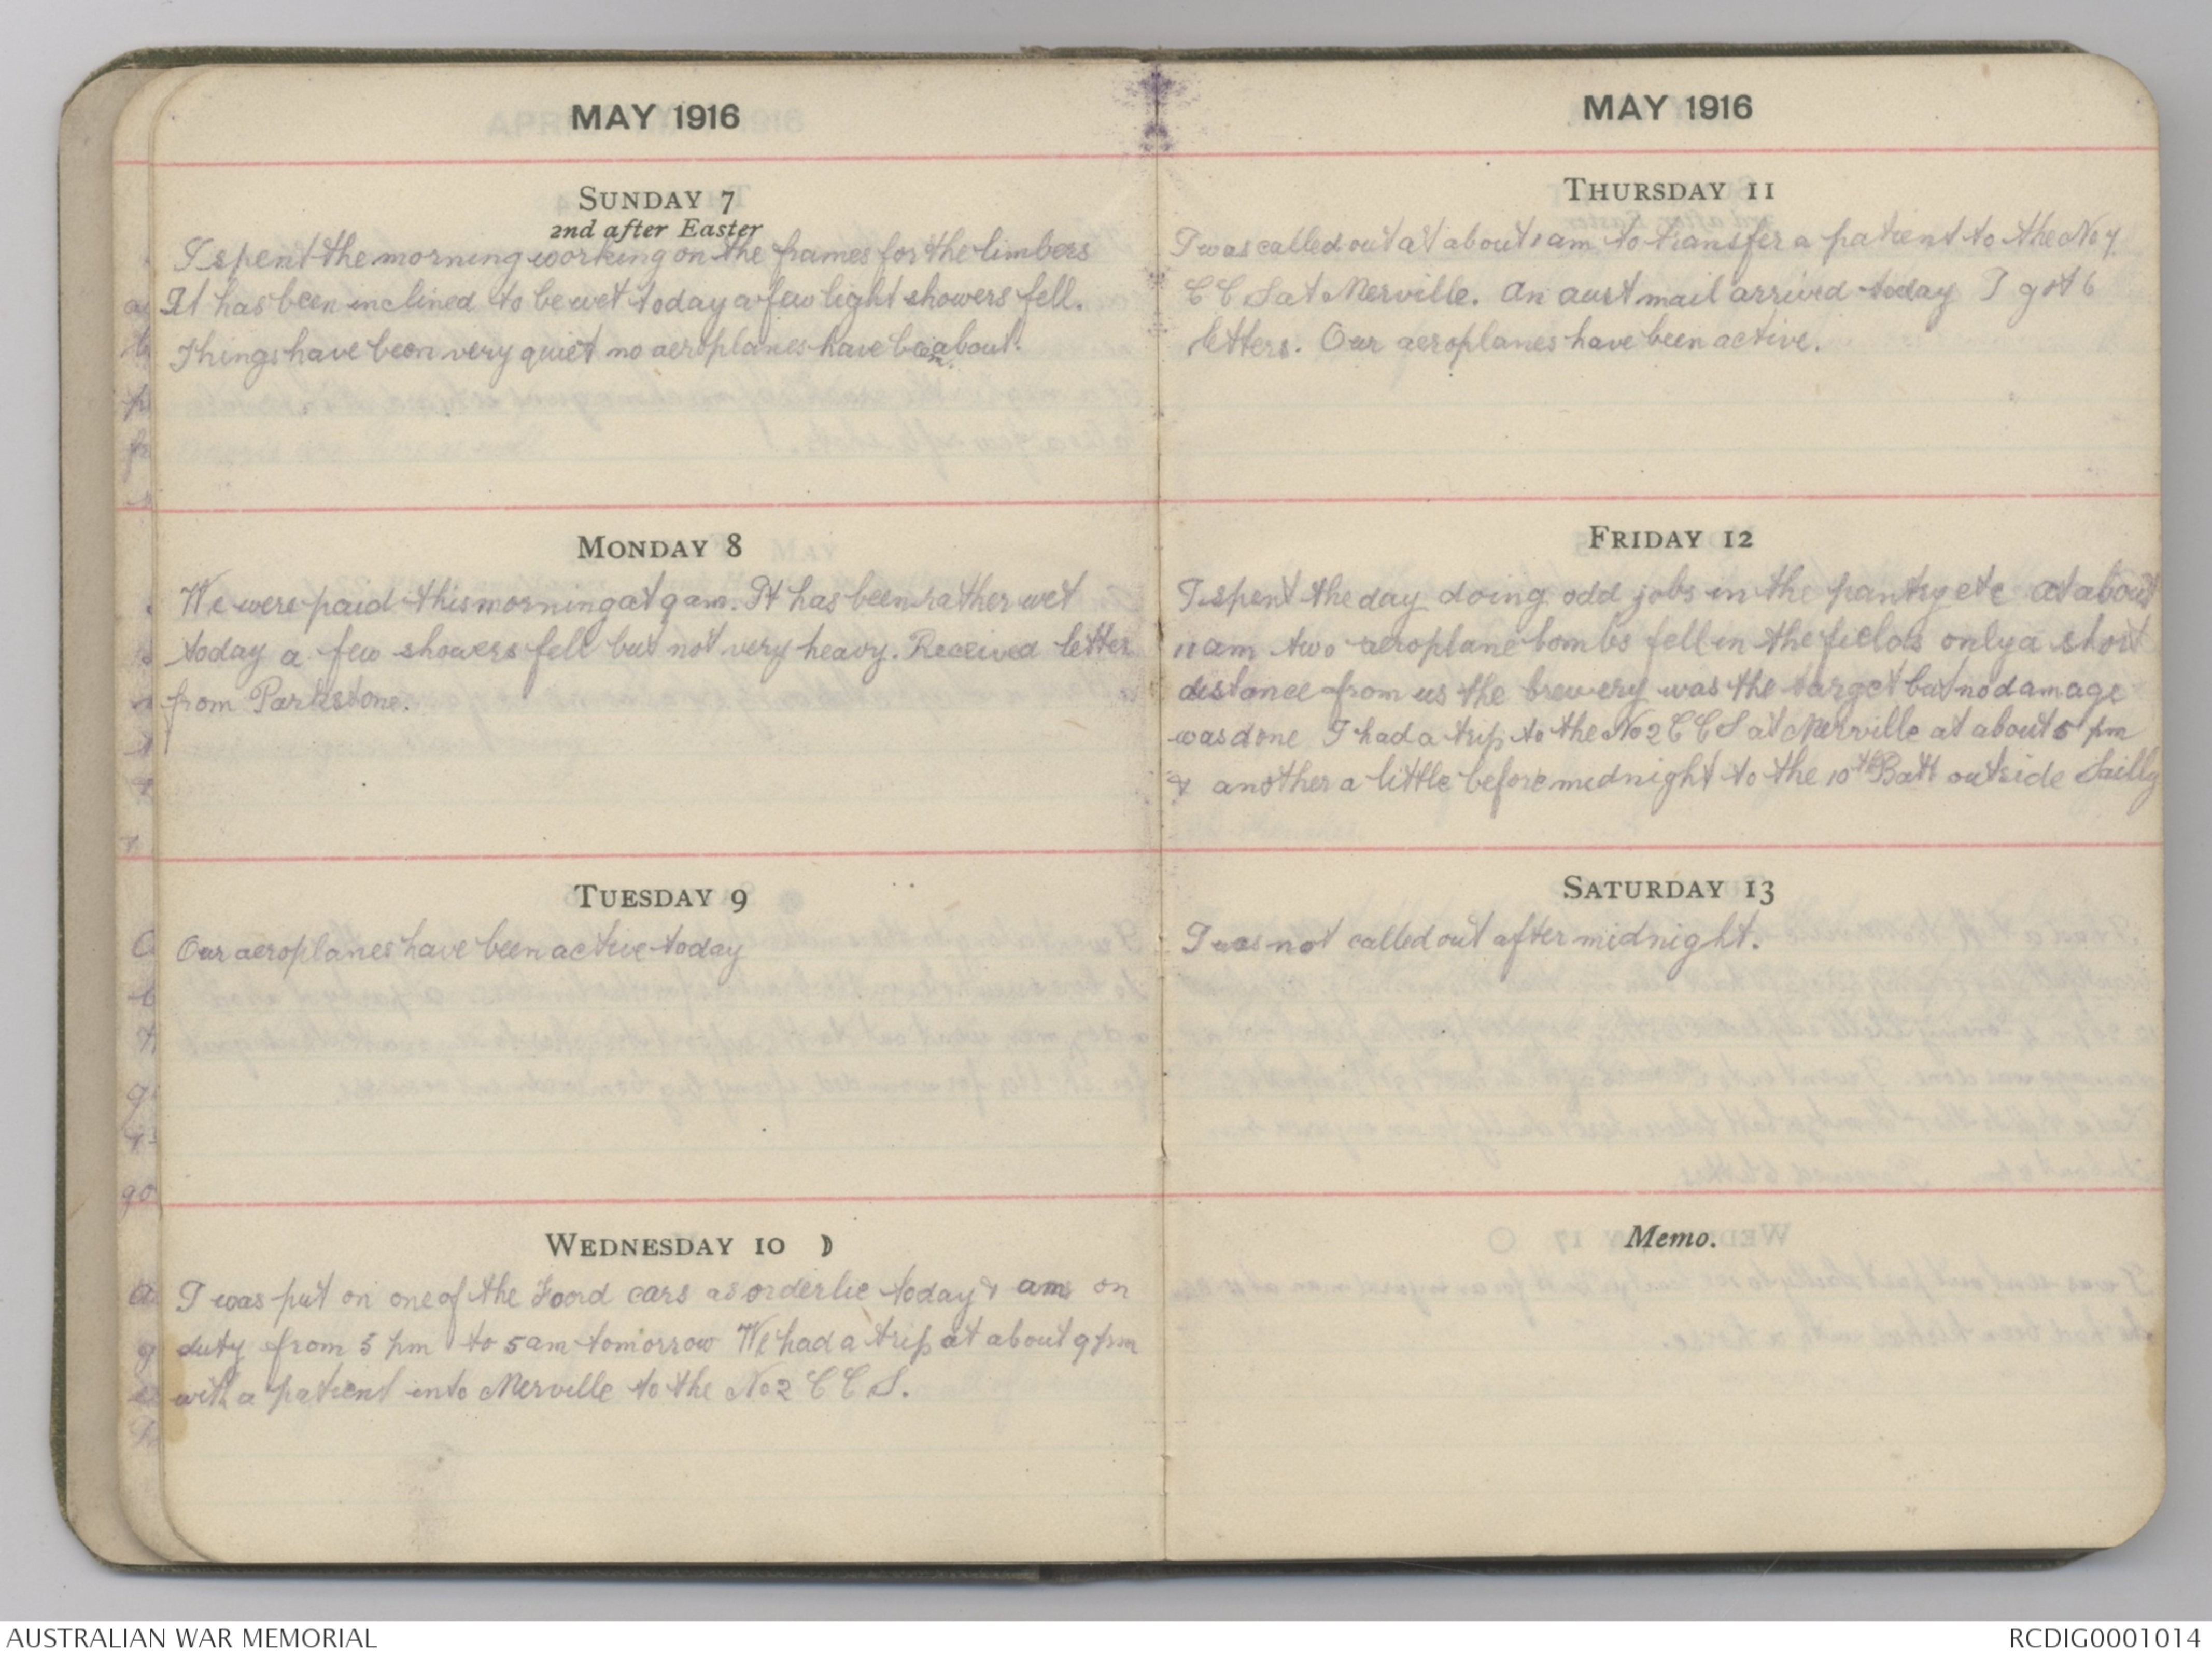 MAY 1916
SUNDAY 7
2nd after Easter
I spent the morning working on the frames for the limbers
It has been inclined to be wet today a few light showers fell.
Things have been very quiet no aeroplanes have been about.
MONDAY 8
We were paid this morning at 9 am. It has been rather wet
today a few showers fell but not very heavy. Received letter
from Parkstone.
TUESDAY 9
Our aeroplanes have been active today
WEDNESDAY 10
I was put on one of the Foord cars as orderlie today & am on
duty from 5 pm to 5 am tomorrow We had a trip at about 9 pm
with a patient into Merville to the No 2 C C S.
MAY 1916
THURSDAY 11
I was called out at about 1 am to transfer a patient to the No 7
C C S at Merville. An aust mail arrived today I got 6
letters. Our aeroplanes have been active.
FRIDAY 12
I spent the day doing odd jobs in the pantry etc at about
11 am two aeroplane bombs fell in the fields only a short
distance from us the brewery was the target but no damage
was done I had a trip to the No 2 C C S at Merville at about 5 pm
& another a little before midnight to the 10th Batt outside Sailly
SATURDAY 13
I was not called out after midnight.
Memo.
AUSTRALIAN WAR MEMORIAL
RCDIG0001014